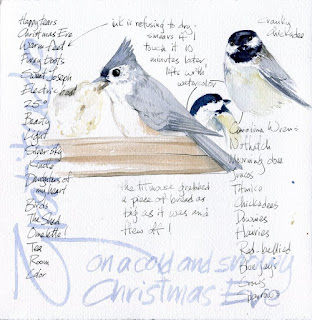 Happy tears
Christmas Eve
Warm feet
Furry boots
Sweet Joseph
Electric
25°
Beauty
Light
Daughters of
my heart
Birds
The Shed
Omelette!
Tea
Room
Color
ink is refusing to dry.
smears if
touch it 10
minutes later
lifts with
watercolor
cranky
chickadee
Carolina Wrens
Nuthatch
Mourning dove
Juncos
Titmice
Chickadees
Downies
Hairies
Red-bellied
Blue Jays
the titmouse grabbed
a piece of bread as
big as it was and
flew off!
on a cold and snowy
Christmas Eve